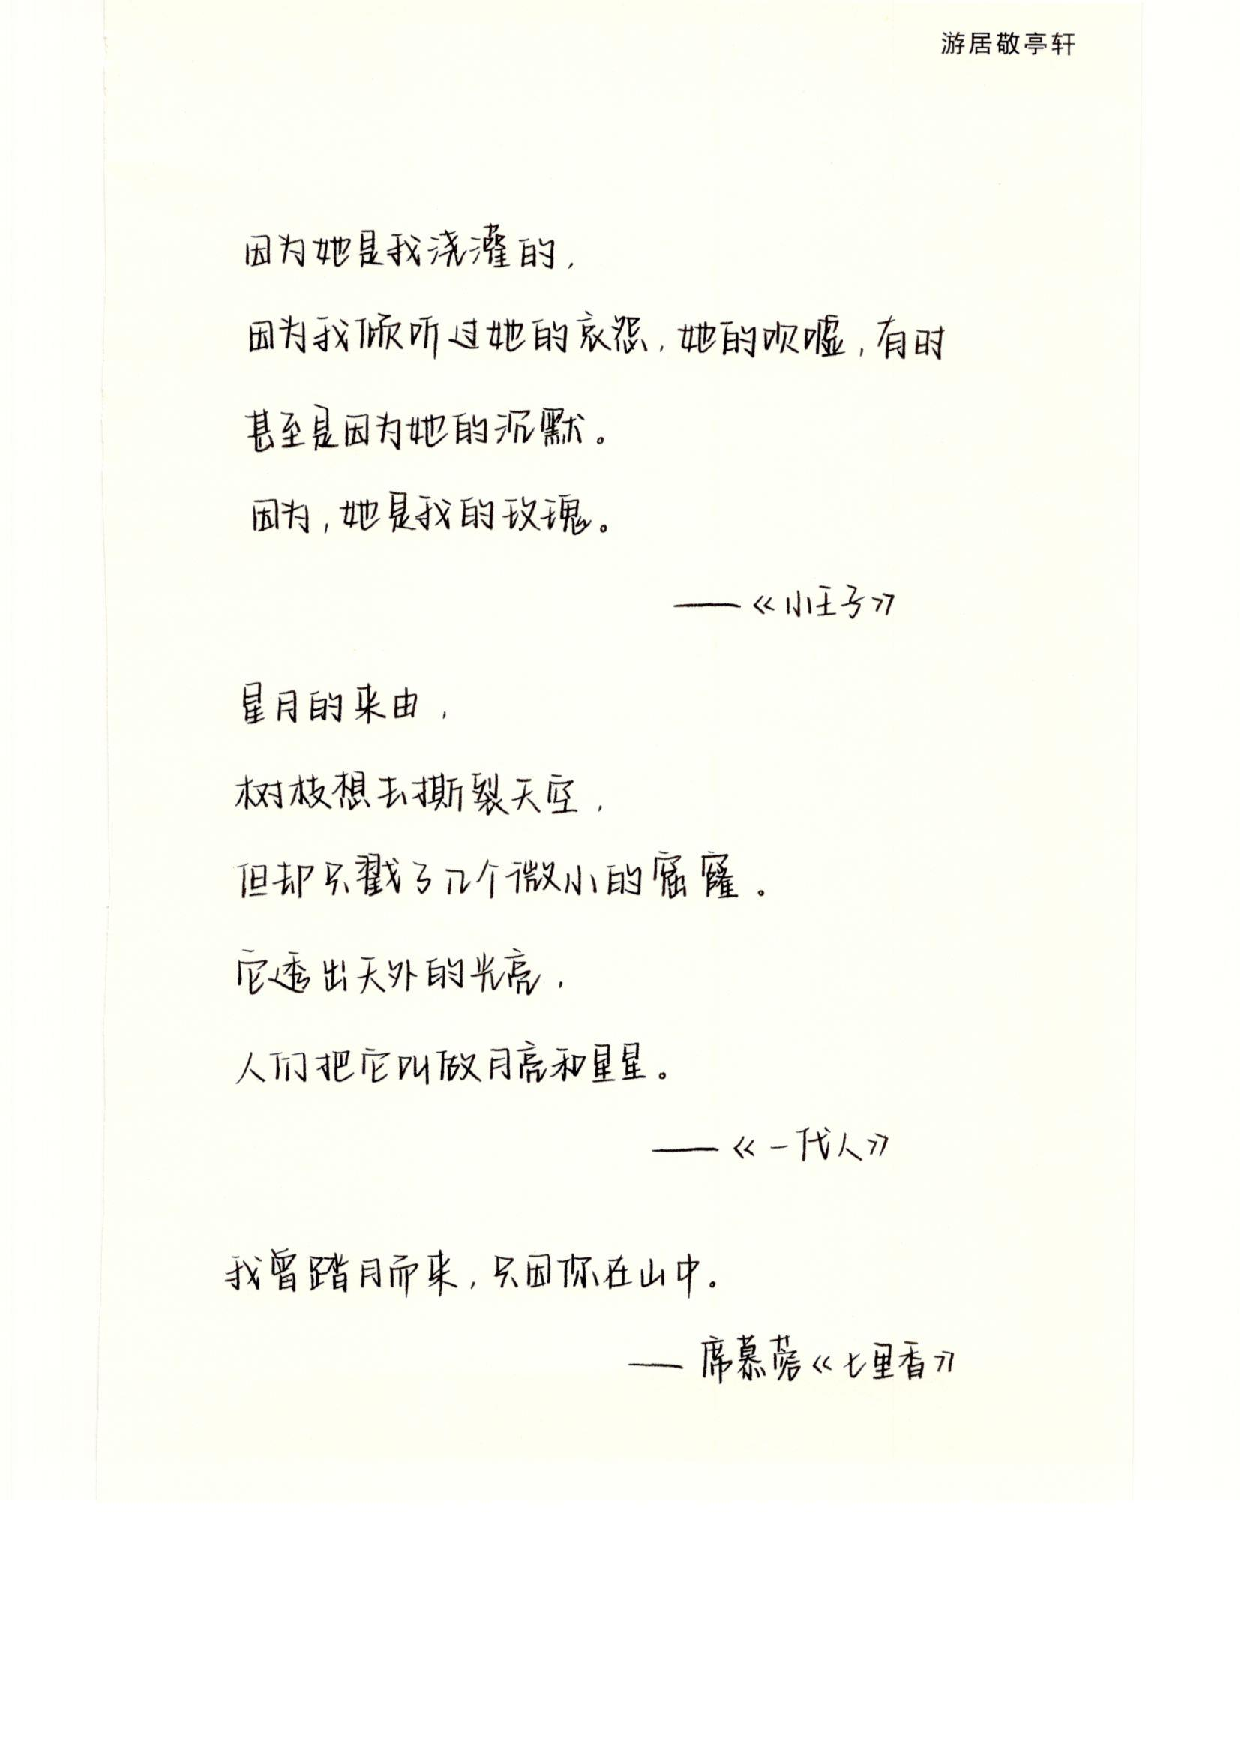 游居敬亭轩
因为她是我浇灌的，
因为我倾听过她的哀怨，她的吹嘘，有时
甚至是因为她的沉默。
因为，她是我的玫瑰。
——《小王子》
星月的来由，
树枝想去撕裂天空，
但却只戳了几个微小的窟窿。
它透出天外的光亮，
人们把它叫做月亮和星星。
——《一代人》
我曾踏月而来，只因你在山中。
——席慕蓉《七里香》